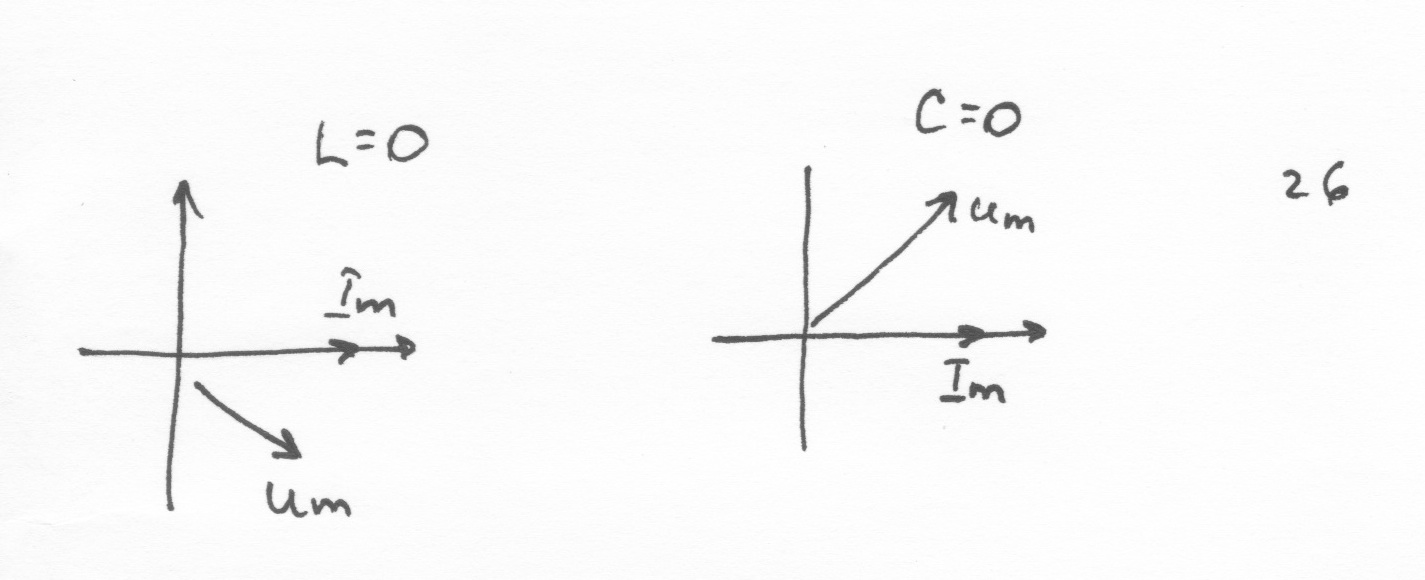 L=0
Im
um
C=0
um
Im
26